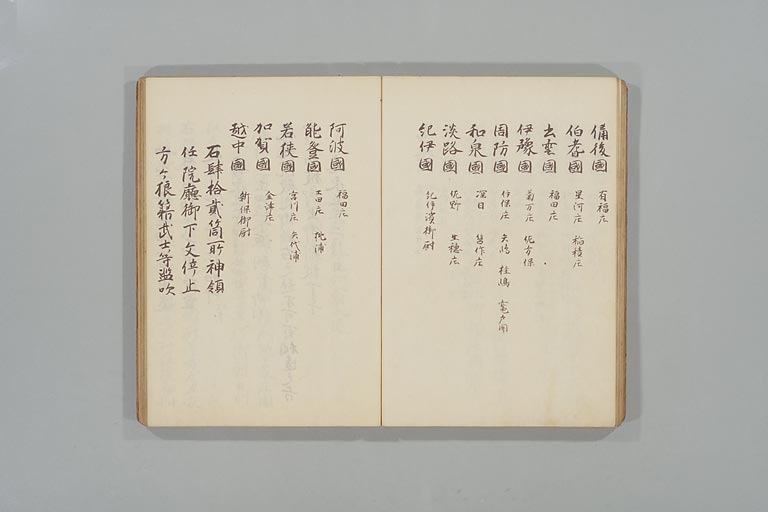 備後國 有福庄
伯耆國 星河庄 稲積庄
出雲國 福田庄
伊豫國 菊万庄 佐方保
周防國 伊保庄 矢嶋 柱嶋 竈戸関
和泉國 深日 箱作庄
淡路國 佐野 生穂庄
紀伊國 紀伊濱御厨
阿波國 福田庄
能登國 土田庄 桃浦
若狭國 宮川庄 矢代浦
加賀國 金津庄
越中國 新保御厨
右肆拾貳箇所神領
任 院廳御下文停止
方々狼籍武士等濫吹